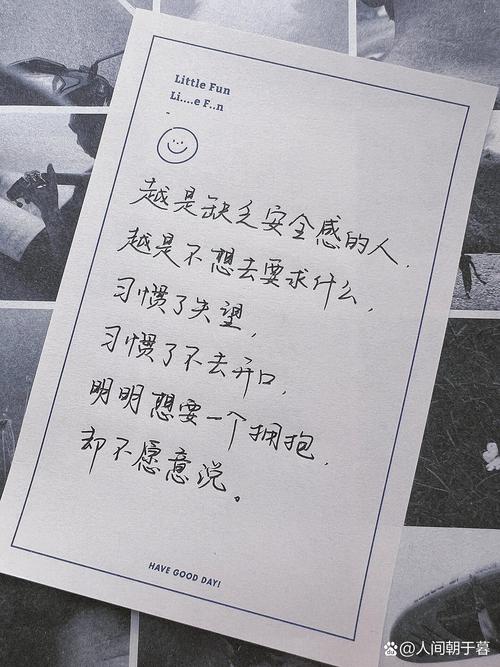 Little Fun
Li....e F..n
越是缺乏安全感的人，
越是不想去要求什么，
习惯了失望，
习惯了不去开口，
明明想要一个拥抱，
却不愿意说。
HAVE GOOD DAY!
@人间朝于暮